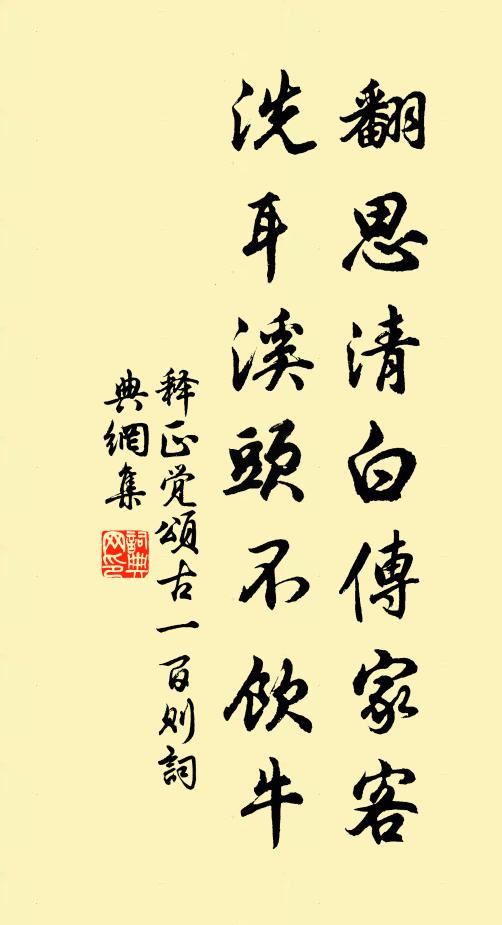 翻思清白傳家客
洗耳溪頭不飲牛
释正觉頌古一百则詞
典網集
詞典
网印